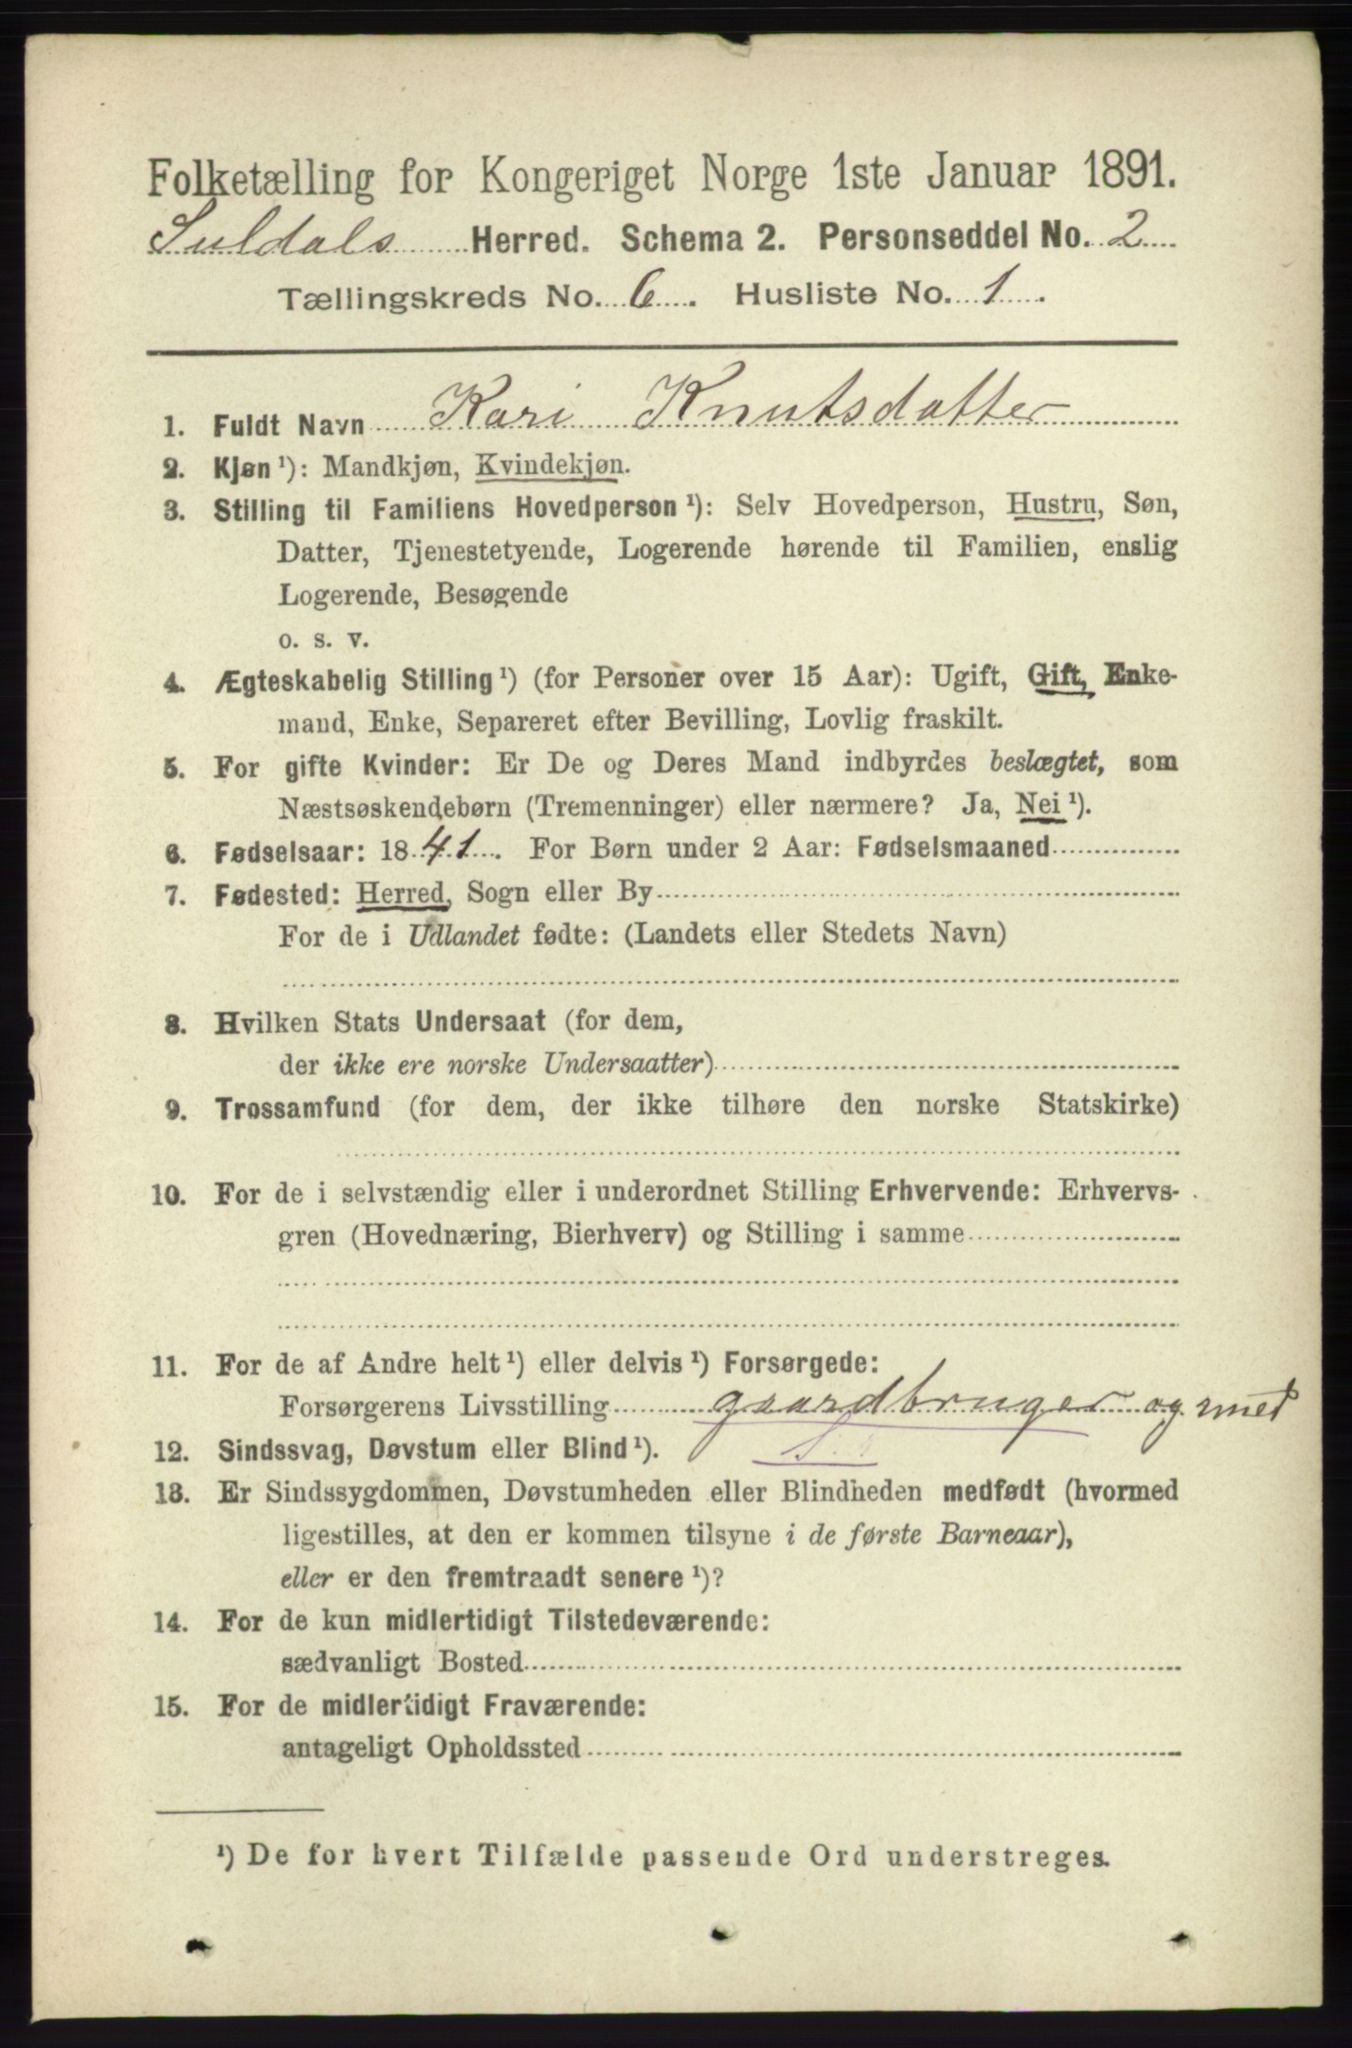 Folketælling for Kongeriget Norge 1ste Januar 1891.
Suldals Herred. Schema 2. Personseddel No. 2
Tællingskreds No. 6. Husliste No. 1.
1. Fuldt Navn Kari Knutsdatter
2. Kjøn ¹): Mandkjøn, Kvindekjøn.
3. Stilling til Familiens Hovedperson ¹): Selv Hovedperson, Hustru, Søn,
Datter, Tjenestetyende, Logerende hørende til Familien, enslig
Logerende, Besøgende
o. s. v.
4. Ægteskabelig Stilling ¹) (for Personer over 15 Aar): Ugift, Gift, Enke-
mand, Enke, Separeret efter Bevilling, Lovlig fraskilt.
5. For gifte Kvinder: Er De og Deres Mand indbyrdes beslægtet, som
Næstsøskendebørn (Tremenninger) eller nærmere? Ja, Nei ¹).
6. Fødselsaar: 1841. For Børn under 2 Aar: Fødselsmaaned
7. Fødested: Herred, Sogn eller By
For de i Udlandet fødte: (Landets eller Stedets Navn)
8. Hvilken Stats Undersaat (for dem,
der ikke ere norske Undersaatter)
9. Trossamfund (for dem, der ikke tilhøre den norske Statskirke)
10. For de i selvstændig eller i underordnet Stilling Erhvervende: Erhvervs-
gren (Hovednæring, Bierhverv) og Stilling i samme
11. For de af Andre helt ¹) eller delvis ¹) Forsørgede:
Forsørgerens Livsstilling gaardbruger og smed
12. Sindssvag, Døvstum eller Blind ¹). S.
13. Er Sindssygdommen, Døvstumheden eller Blindheden medfødt (hvormed
ligestilles, at den er kommen tilsyne i de første Barneaar),
eller er den fremtraadt senere ¹)?
14. For de kun midlertidigt Tilstedeværende:
sædvanligt Bosted
15. For de midlertidigt Fraværende:
antageligt Opholdssted
¹) De for hvert Tilfælde passende Ord understreges.